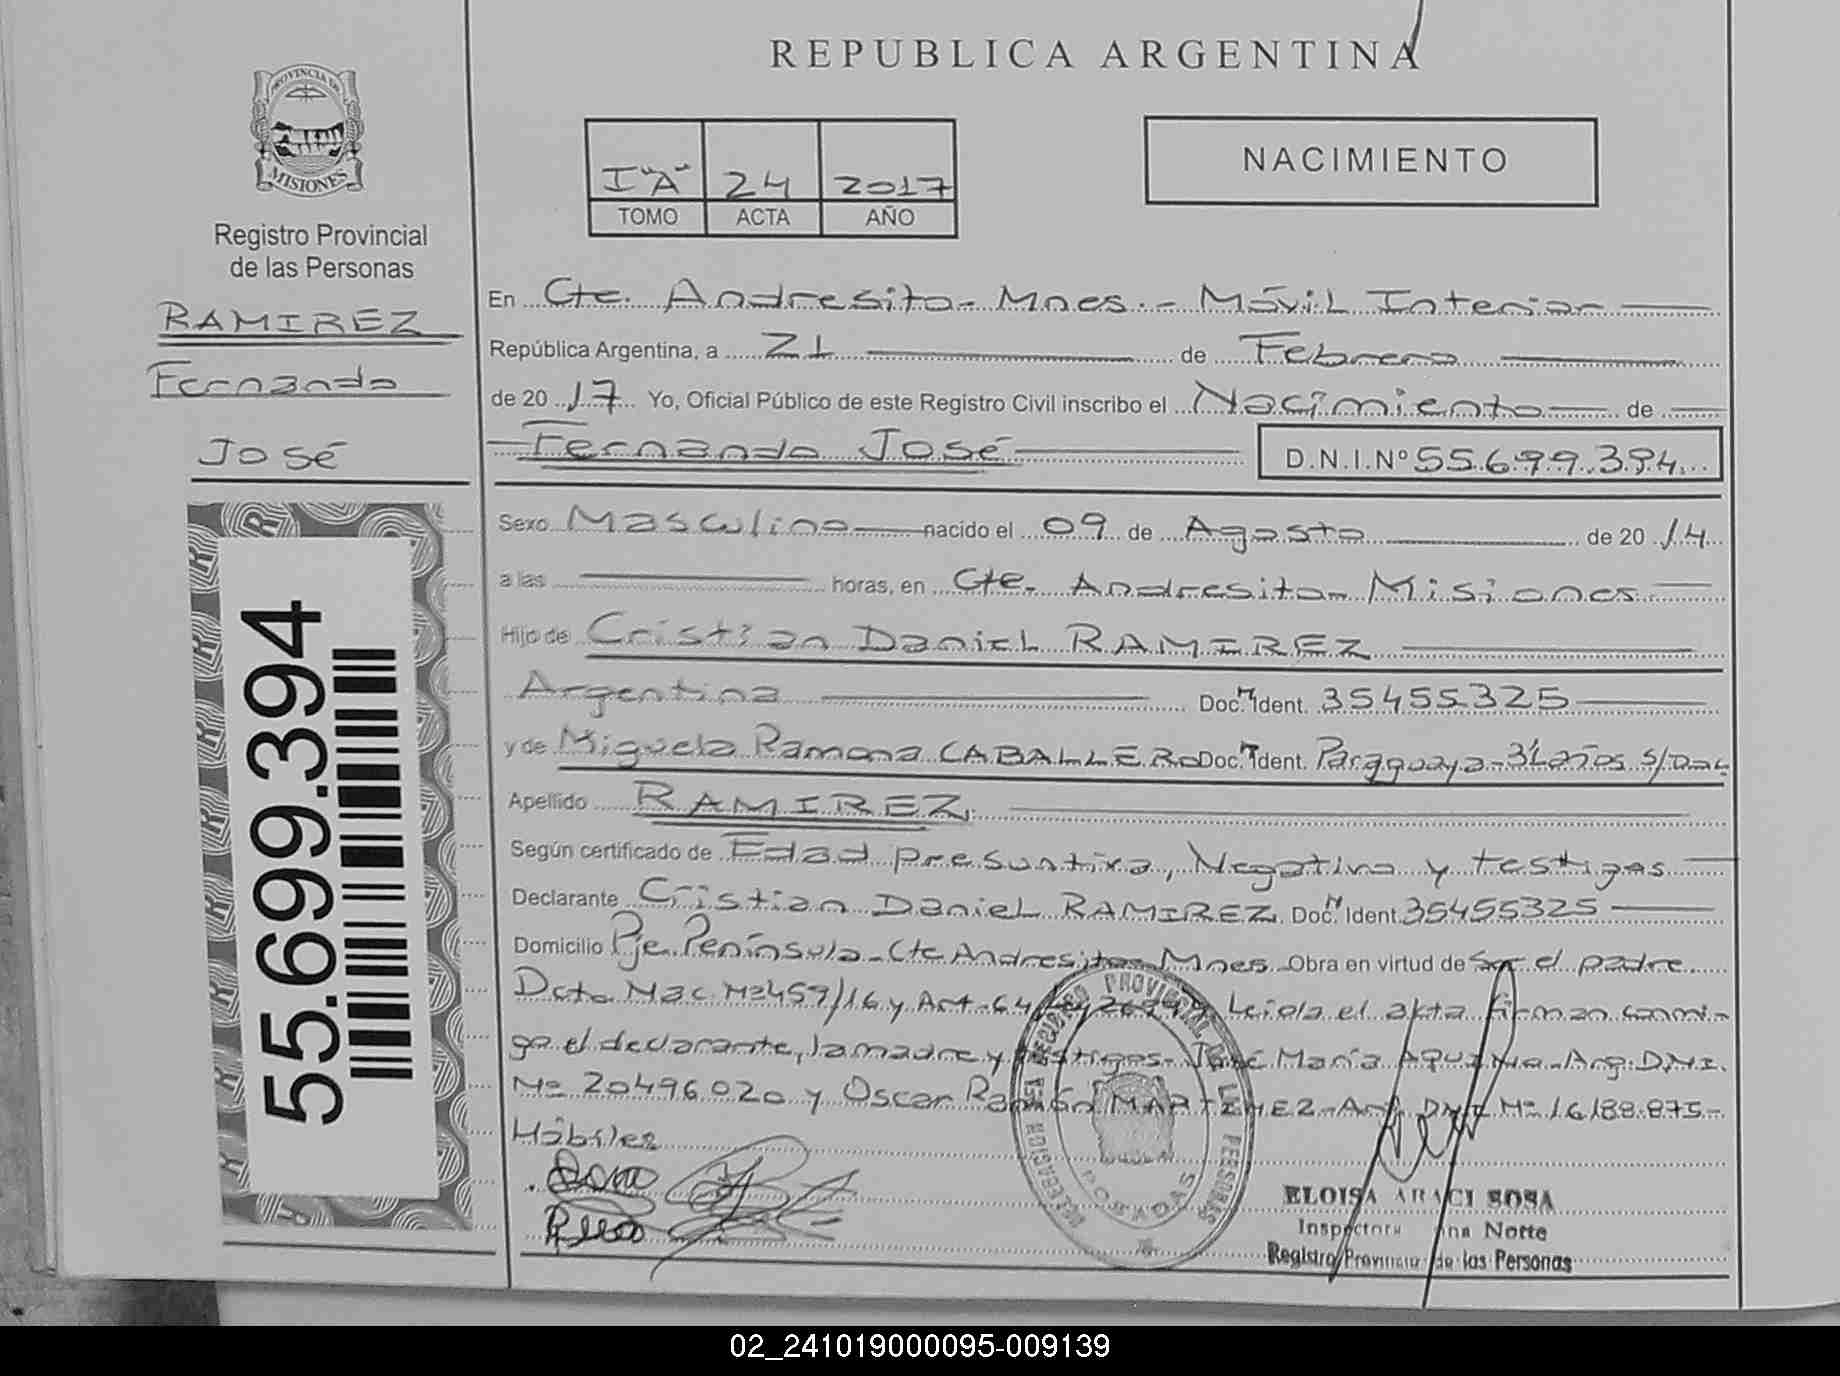 REPUBLICA ARGENTINA
PROVINCIA DE
MISIONES
Registro Provincial
de las Personas
RAMIREZ
Fernando
José
55.699.394
I "A" 24 2017
TOMO ACTA AÑO
NACIMIENTO
En Cte. Andresito - Mnes. - Móvil Interior
República Argentina, a 21 de Febrero
de 2017 Yo, Oficial Público de este Registro Civil inscribo el Nacimiento de
Fernando José D.N.I.Nº 55.699.394
Sexo Masculino nacido el 09 de Agosto de 2014
a las horas, en Cte. Andresito - Misiones
Hijo de Cristian Daniel RAMIREZ
Argentina Doc. Ident. 35455325
y de Miguela Ramona CABALLERO Doc. Ident. Paraguaya - 31 años s/Doc
Apellido RAMIREZ
Según certificado de Edad presuntiva, Negativo y testigos
Declarante Cristian Daniel RAMIREZ Doc. Ident. 35455325
Domicilio Pje. Península - Cte Andresito - Mnes Obra en virtud de Ser el padre
Dcto Nac Nº 459/16 y Art - 64 Ley Leida el acta firman conmi-
go el declarante, la madre y testigos - José María - Arg. D.N.I.
Nº 20496020 y Oscar Ramón MARTINEZ - Arg. DNI Nº 16.188.875 -
Hábiles
REGISTRO PROVINCIAL DE LAS PERSONAS
POSADAS
ELOISA ARACI SOSA
Inspectora Zona Norte
Registro Provincial de las Personas
02_241019000095-009139